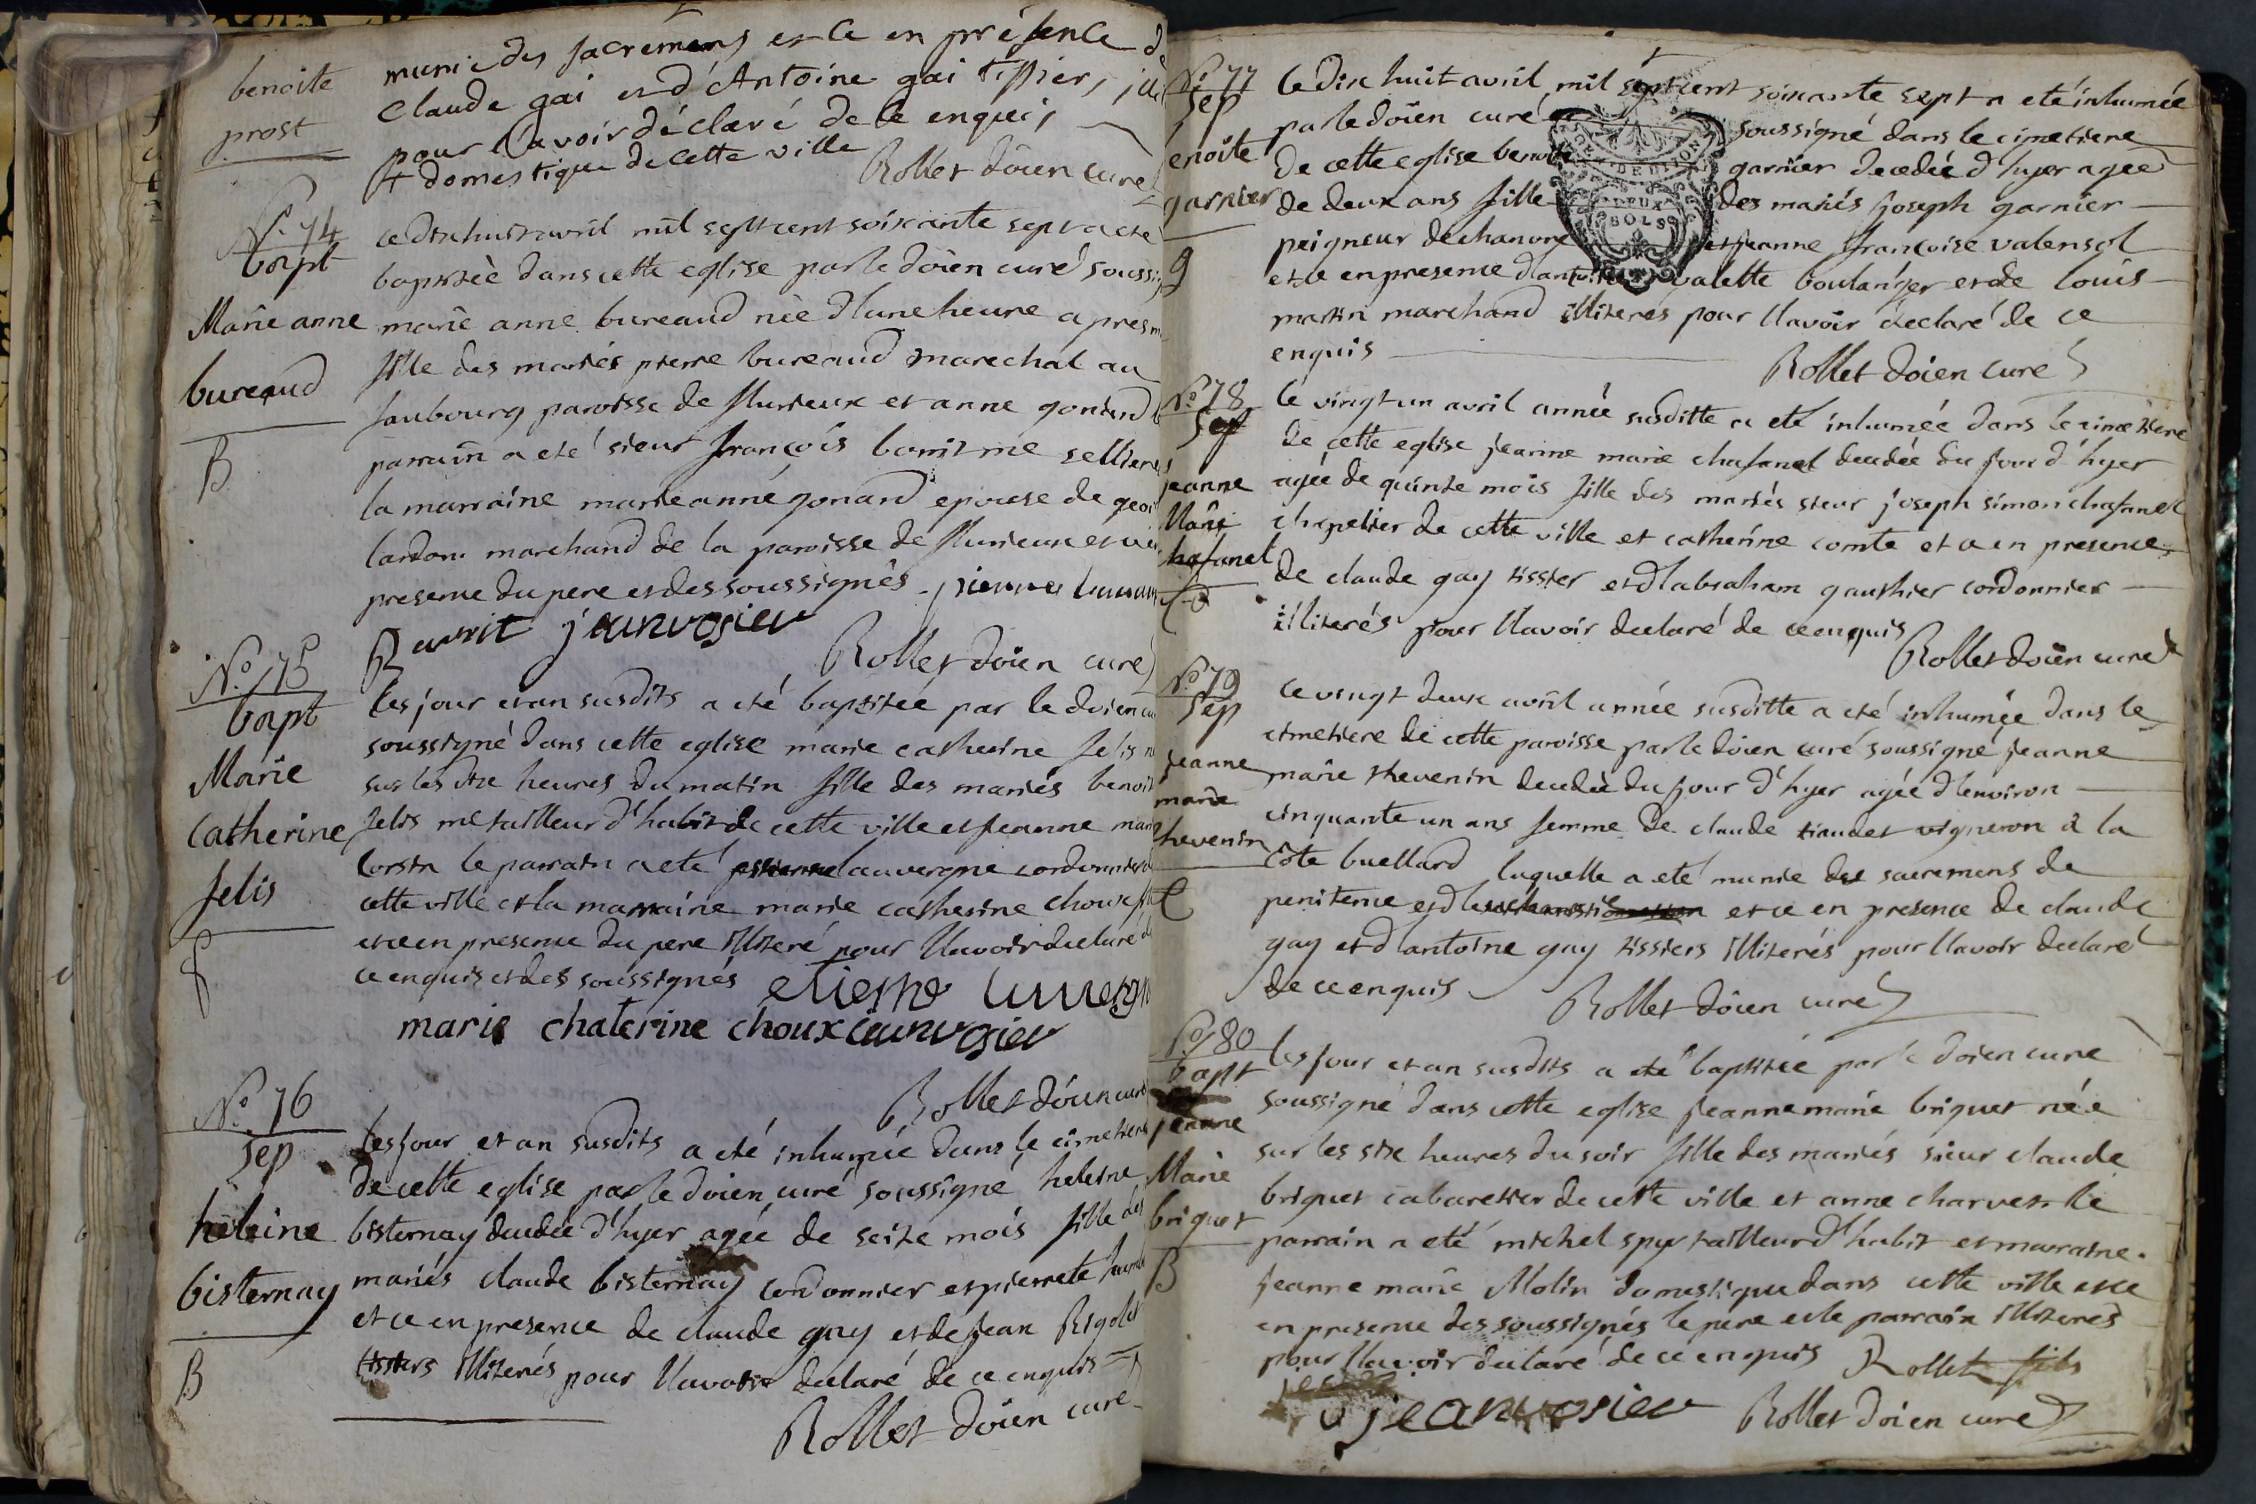 benoite
prost
munie des sacremens et ce en présence d
Claude gai et d'Antoine gai tissier, ill
pour l'avoir déclaré de ce enquis,
+ domestique de cette ville
Rollet doïen curé
N° 74
bapt
Marie anne
bureaud
B
ce dixhuit avril mil sept cent soixante sept a eté
baptisèe dans cette eglise par le doïen curé soussi
marie anne bureaud née d'une heure apres m
fille des mariés pierre bureaud marechal au
faubourg paroisse de flurieux et anne gonard
parrain a eté sieur françois
la marraine marie anne gonard epouse de
marchand de la paroisse de flurieux et
presence du pere et des soussignés
jeanvosier
Rollet doïen curé
N° 75
bapt
Marie
Catherine
felis
f
les jour et an susdits a eté baptisée par le doien cu
soussigné dans cette eglise marie catherine felis n
sur les dix heures du matin fille des mariés benoit
felis me tailleur d'habit de cette ville et jeanne mari
le parrain a eté lauvergne cordonnier
cette ville et la marraine marie catherine choux
et ce en presence du pere illiteré pour l'avoir declaré de
ce enquis et des soussignés etiesne
marie chaterine choux jeanvosier
Rollet doïen curé
N° 76
Sep
heleine
bisternay
B
les jour et an susdits a eté inhumée dans le cimetiere
de cette eglise par le doien curé soussigné heleine
bisternay decedée d'hyer agée de seize mois fille des
mariés claude bisternay cordonnier et pierrete
et ce en presence de claude guy et de jean Rigolet
tissiers illiterés pour l'avoir declaré de ce enquis
Rollet doïen curé
N° 77
Sep
enoite
garnier
g
le dix huit avril mil sept cent soixante sept a eté inhumée
par le doïen curé soussigné dans le cimetiere
de cette eglise benoite garnier decedée d'hyer agee
de deux ans fille des mariés joseph garnier
peigneur de chanvre et jeanne françoise valensol
et ce en presence d'antoine valette boulanger et de louis
martin marchand illiterés pour l'avoir declaré de ce
enquis
Rollet doïen curé
DEUX
SOLS
N° 78
Sep
jeanne
Marie
hafanel
le vingt un avril année susditte a eté inhumée dans le cimetiere
de cette eglise jeanne marie chafanel decedée du jour d'hyer
agée de quinze mois fille des mariés sieur joseph simon chafanel
chapelier de cette ville et catherine comte et ce en presence
de claude gay tissier et d'abraham gauthier cordonnier
illiterés pour l'avoir declaré de ce enquis
Rollet doïen curé
N° 79
Sep
jeanne
marie
thevenin
C
ce vingt deux avril année susditte a eté inhumée dans le
cimetiere de cette paroisse par le doïen curé soussigné jeanne
marie thevenin decedée du jour d'hyer agée d'environ
cinquante un ans femme de claude tiaudet vigneron à la
côte buellard laquelle a eté munie des sacremens de
penitence et d'eucharistie et ce en presence de claude
gay et d'antoine gay tissiers illiterés pour l'avoir declaré
de ce enquis
Rollet doïen curé
N° 80
bapt
jeanne
Marie
briquet
B
les jour et an susdits a eté baptisée par le doïen curé
soussigné dans cette eglise jeanne marie briquet née
sur les six heures du soir fille des mariés sieur claude
briquet cabaretier de cette ville et anne charvet le
parrain a eté michel spy tailleur d'habit et marraine
jeanne marie Molin domestique dans cette ville et ce
en presence des soussignés le pere et le parrain illiterés
pour l'avoir declaré de ce enquis Rollet fils
jeanvosier
Rollet doïen curé